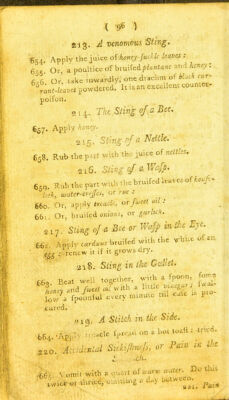 ( 96 )
213. A venomous Sting.
654. Apply the juice of honey-suckle leaves:
655. Or, a poultice of bruised plantane and honey:
656. Or, take inwardly, one drachm of black cur-
rant-leaves powdered. It is an excellent counter-
poison.
214. The Sting of a Bee.
657. Apply honey.
215. Sting of a Nettle.
658. Rub the part with the juice of nettles.
216. Sting of a Wasp.
659. Rub the part with the bruised leaves of house-
leek, water-cresses, or rue:
660. Or, apply treacle, or sweet oil:
661. Or, bruised onions, or garlick.
217. Sting of a Bee or Wasp in the Eye.
662. Apply carduus bruised with the white of an
egg: renew it if it grows dry.
218. Sting in the Gullet.
663. Beat well together, with a spoon, some
honey and sweet oil with a little vinegar: swal-
low a spoonful every minute till ease is pro-
cured.
219. A Stitch in the Side.
664. Apply treacle spread on a hot toast: tried.
220. Accidental Sickness, or Pain in the
665. Vomit with a quart of warm water. Do this
twice or thrice, omitting a day between.
221. Pain